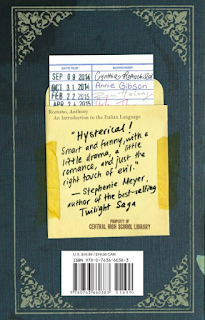 DATE DUE BORROWER
SEP 08 2014
OCT 31 2014 Annie Gibson
FEB 27 2015
APR 24 2015
Romano, Anthony
An Introduction to the Italian Language
"Hysterical!
Smart and funny, with a
little drama, a little
romance, and just the
right touch of evil."
— Stephenie Meyer,
author of the best-selling
Twilight Saga
PROPERTY OF
CENTRAL HIGH SCHOOL LIBRARY
ISBN 978-0-7636-6038-3